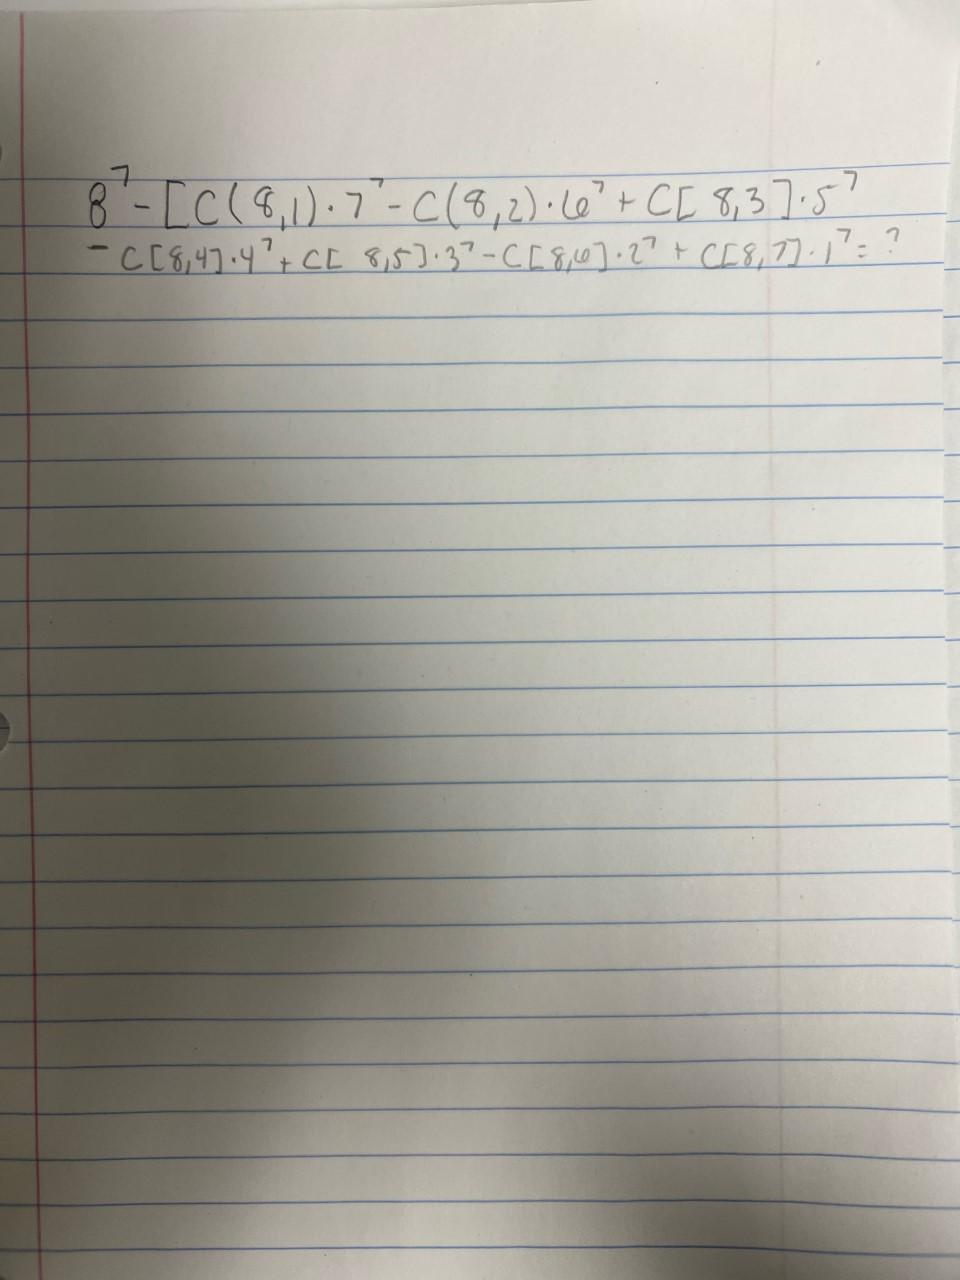 8⁷ - [C(8,1)·7⁷ - C(8,2)·6⁷ + C[8,3]·5⁷
- C[8,4]·4⁷ + C[8,5]·3⁷ - C[8,6]·2⁷ + C[8,7]·1⁷ = ?